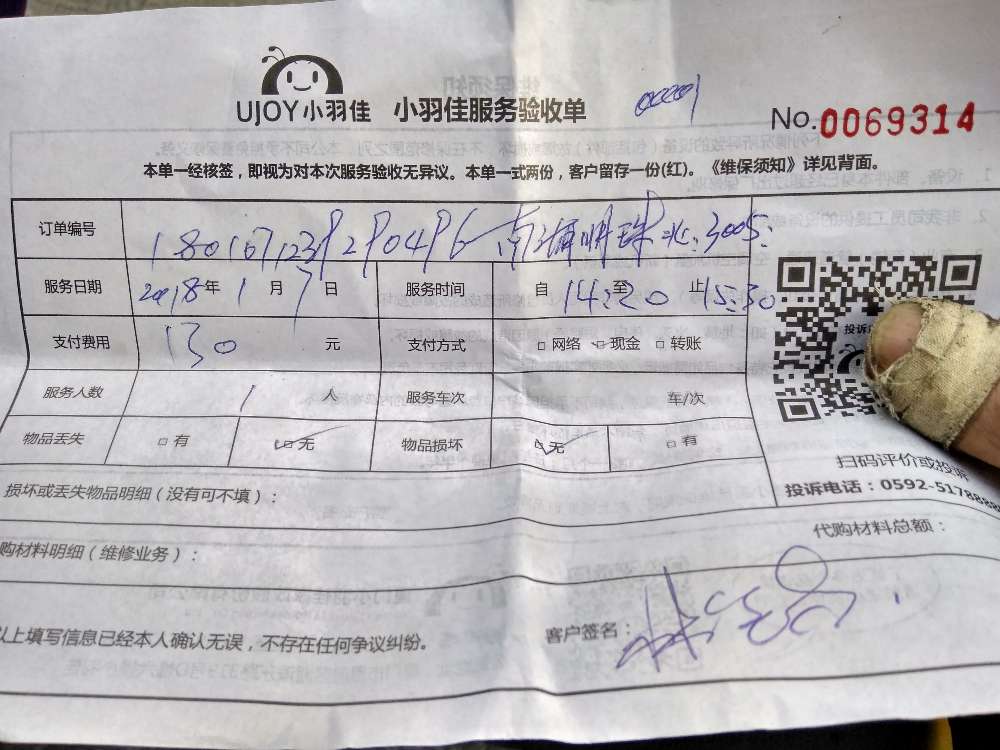 UJOY小羽佳 小羽佳服务验收单
No.0069314
本单一经核签，即视为对本次服务验收无异议。本单一式两份，客户留存一份(红)。《维保须知》详见背面。
订单编号
服务日期 2018年1月7日 服务时间 自14:20至 止15:30
支付费用 130 元 支付方式 □网络 □现金 □转账
服务人数 1 人 服务车次 车/次
物品丢失 □有 □无 物品损坏 □无 □有
投诉
扫码评价或投诉
损坏或丢失物品明细（没有可不填）：
投诉电话：0592-5178888
代购材料总额：
购材料明细（维修业务）：
以上填写信息已经本人确认无误，不存在任何争议纠纷。
客户签名：